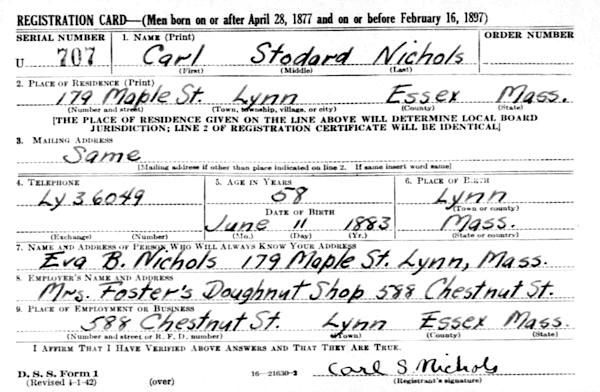 REGISTRATION CARD—(Men born on or after April 28, 1877 and on or before February 16, 1897)
SERIAL NUMBER 1. NAME (Print) ORDER NUMBER
U 707 Carl Stodard Nichols
(First) (Middle) (Last)
2. PLACE OF RESIDENCE (Print)
179 Maple St. Lynn Essex Mass.
(Number and street) (Town, township, village, or city) (County) (State)
[THE PLACE OF RESIDENCE GIVEN ON THE LINE ABOVE WILL DETERMINE LOCAL BOARD
JURISDICTION; LINE 2 OF REGISTRATION CERTIFICATE WILL BE IDENTICAL]
3. MAILING ADDRESS
Same
[Mailing address if other than place indicated on line 2. If same insert word same]
4. TELEPHONE 5. AGE IN YEARS 6. PLACE OF BIRTH
Ly 3 6049 58 Lynn
DATE OF BIRTH (Town or county)
June 11 1883 Mass.
(Exchange) (Number) (Mo.) (Day) (Yr.) (State or country)
7. NAME AND ADDRESS OF PERSON WHO WILL ALWAYS KNOW YOUR ADDRESS
Eva B. Nichols 179 Maple St. Lynn, Mass.
8. EMPLOYER'S NAME AND ADDRESS
Mrs. Foster's Doughnut Shop 588 Chestnut St.
9. PLACE OF EMPLOYMENT OR BUSINESS
588 Chestnut St. Lynn Essex Mass.
(Number and street or R. F. D. number) (Town) (County) (State)
I AFFIRM THAT I HAVE VERIFIED ABOVE ANSWERS AND THAT THEY ARE TRUE.
D. S. S. Form 1 Carl S. Nichols
(Revised 4-1-42) (over) 16—21630-2 (Registrant's signature)